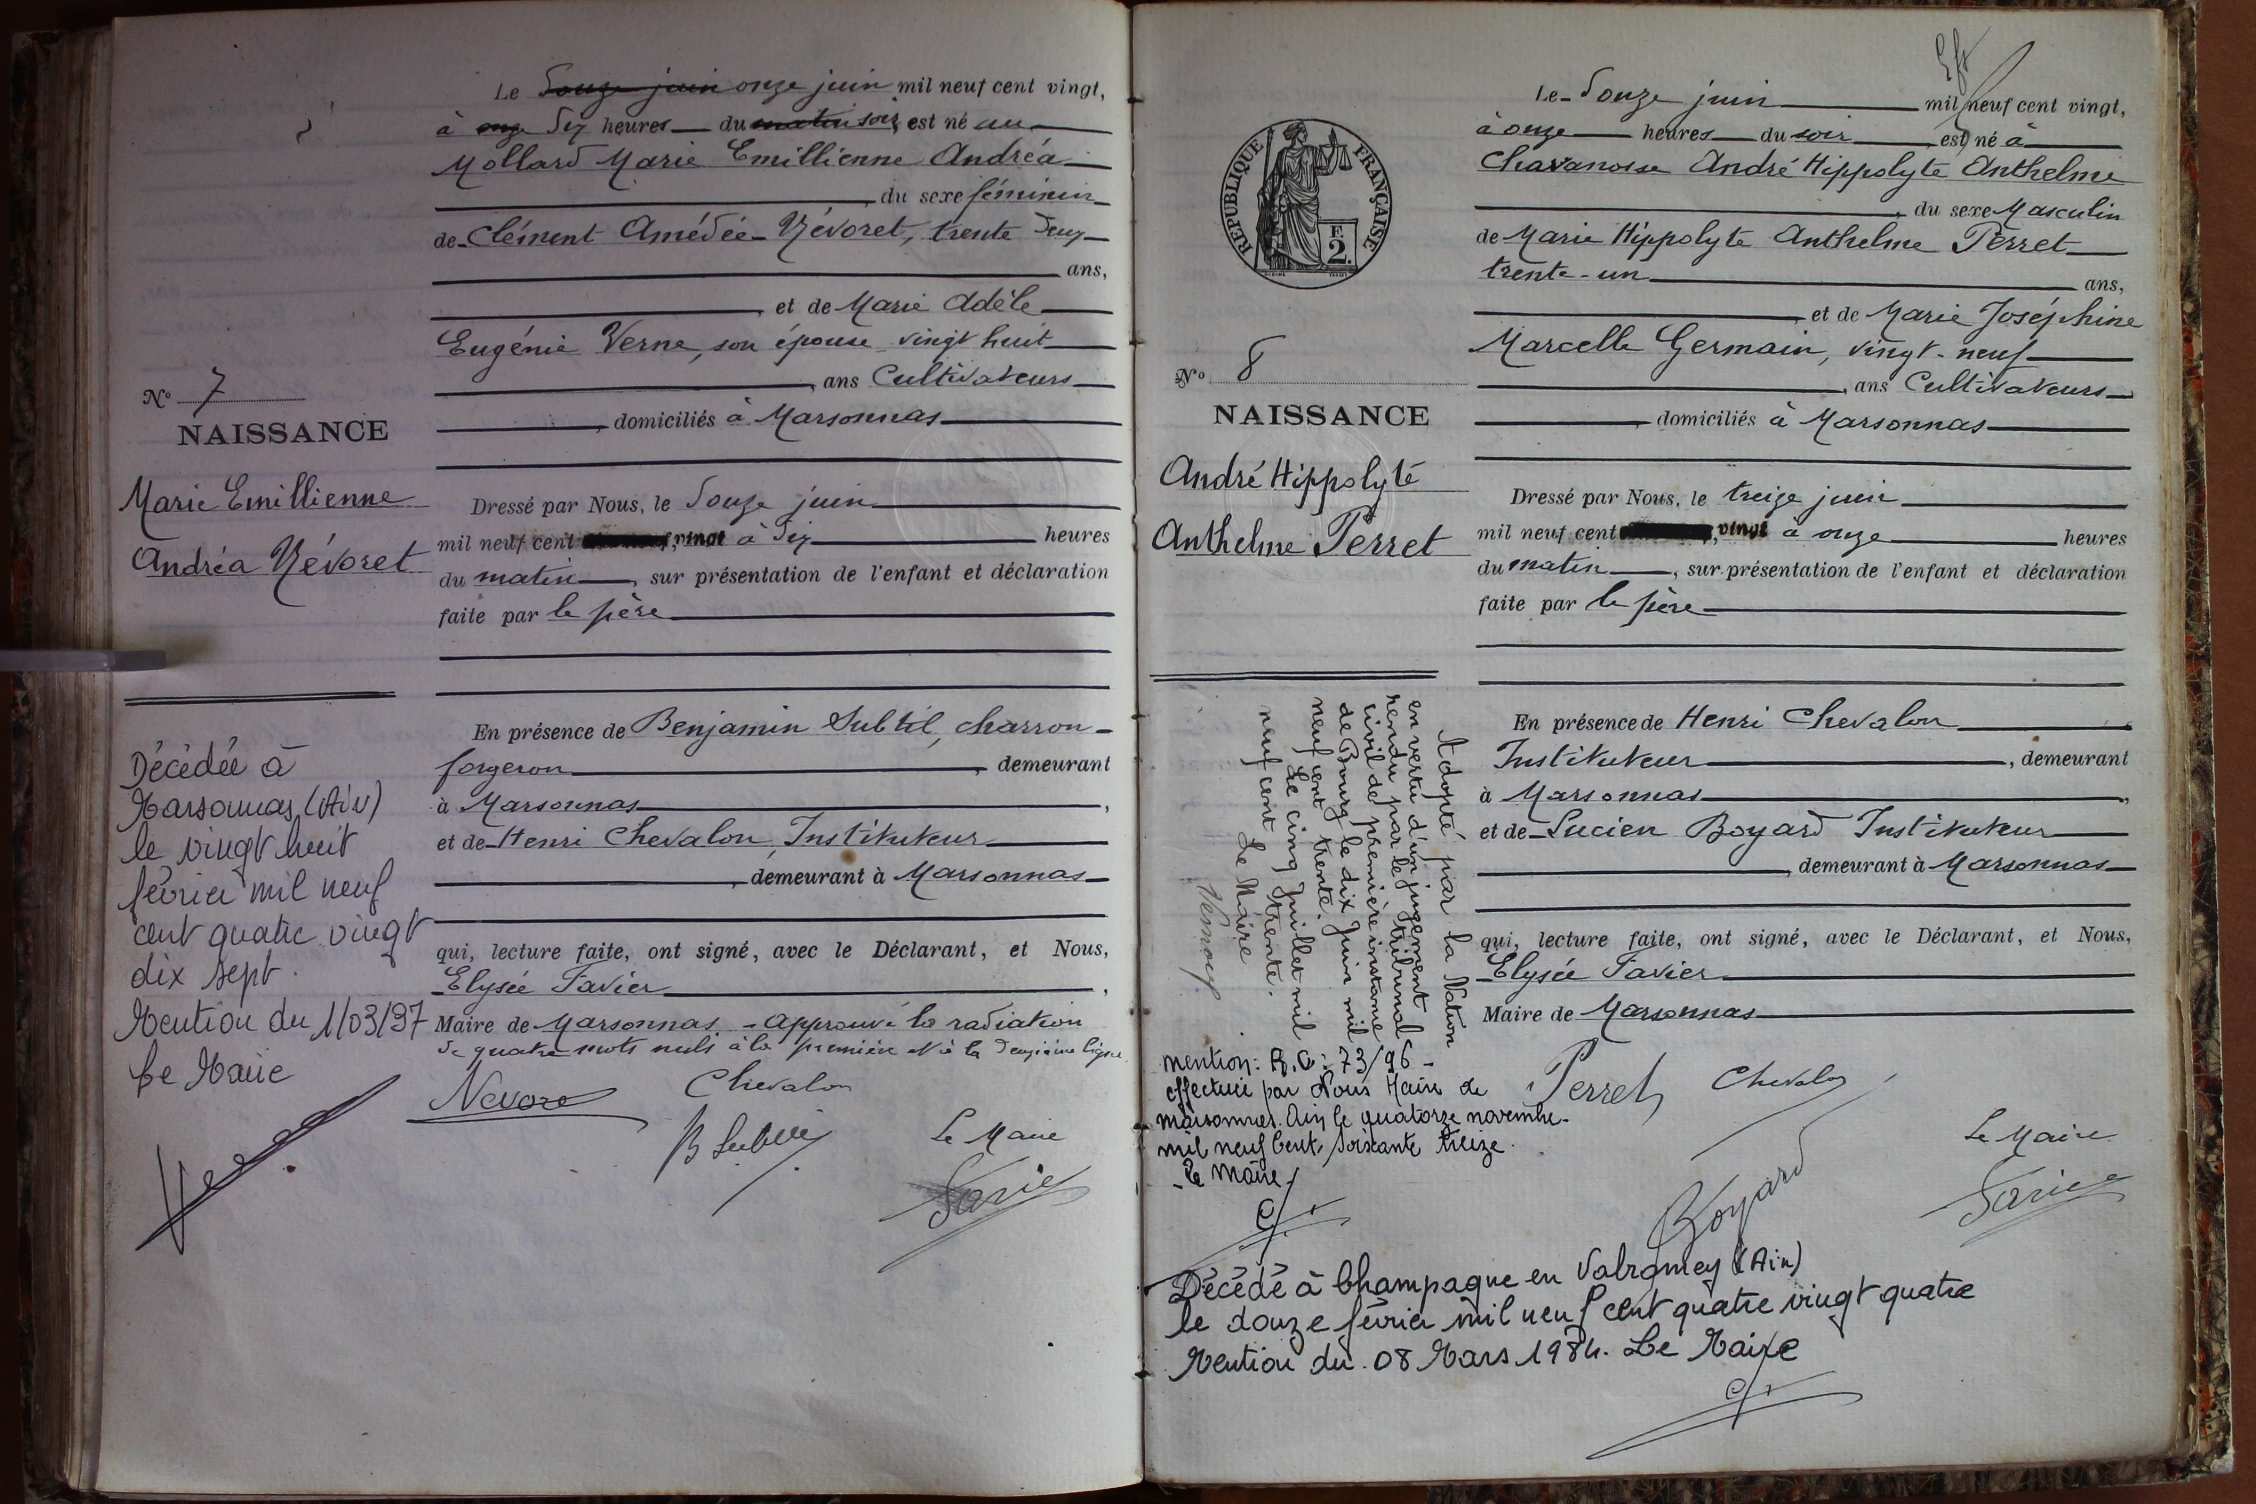 Le douze juin onze juin mil neuf cent vingt,
à onze dix heures du matin soir est né au
Mollard Marie Emillienne Andréa
du sexe féminin
de Clément Amédée Névoret, trente deux
ans,
et de Marie Adèle
Eugénie Verne, son épouse vingt huit
ans Cultivateurs
domiciliés à Marsonnas
No 7
NAISSANCE
Marie Emillienne
Andréa Névoret
Dressé par Nous, le douze juin
mil neuf cent vingt à dix heures
du matin, sur présentation de l'enfant et déclaration
faite par le père
En présence de Benjamin Subtil, charron-
forgeron, demeurant
à Marsonnas,
et de Henri Chevalon, Instituteur
demeurant à Marsonnas
qui, lecture faite, ont signé, avec le Déclarant, et Nous,
Elysée Favier,
Maire de Marsonnas. - Approuvé la radiation
de quatre mots nuls à la première et à la deuxième ligne.
Névoret
Chevalon
B Subtil
Le Maire
Favier
Décédée à
Marsonnas (Ain)
le vingt huit
février mil neuf
cent quatre vingt
dix sept.
Mention du 1/03/97
Le Maire
Le douze juin mil neuf cent vingt,
à onze heures du soir est né à
Chavanosse André Hippolyte Anthelme
du sexe Masculin
de Marie Hippolyte Anthelme Perret
trente-un ans,
et de Marie Joséphine
Marcelle Germain, vingt-neuf
ans Cultivateurs
domiciliés à Marsonnas
REPUBLIQUE FRANÇAISE
F
2.
No 8
NAISSANCE
André Hippolyte
Anthelme Perret
Dressé par Nous, le treize juin
mil neuf cent vingt à onze heures
du matin, sur présentation de l'enfant et déclaration
faite par le père
En présence de Henri Chevalon
Instituteur, demeurant
à Marsonnas,
et de Lucien Boyard Instituteur
demeurant à Marsonnas
qui, lecture faite, ont signé, avec le Déclarant, et Nous,
Elysée Favier
Maire de Marsonnas
Perret
Chevalon
Boyard
Le Maire
Favier
Adopté par la Nation
en vertu d'un jugement
rendu par le tribunal
civil de première instance
de Bourg le dix Juin mil
neuf cent trente.
Le cinq Juillet mil
neuf cent trente.
Le Maire
mention: R.C: 73/96 -
effectuée par Nous Maire de
Marsonnas. Ain le quatorze novembre
mil neuf Cent, Soixante treize.
Le Maire
Décédé à Champagne en Valromey (Ain)
le douze février mil neuf cent quatre vingt quatre
Mention du 08 Mars 1984. Le Maire